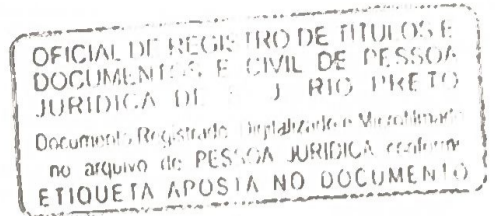 OFICIAL DE REGISTRO DE TITULOS E
DOCUMENTOS E CIVIL DE PESSOA
JURIDICA DE J RIO PRETO
Documento Registrado Digitalizado e Microfilmado
no arquivo de PESSOA JURIDICA conforme
ETIQUETA APOSTA NO DOCUMENTO